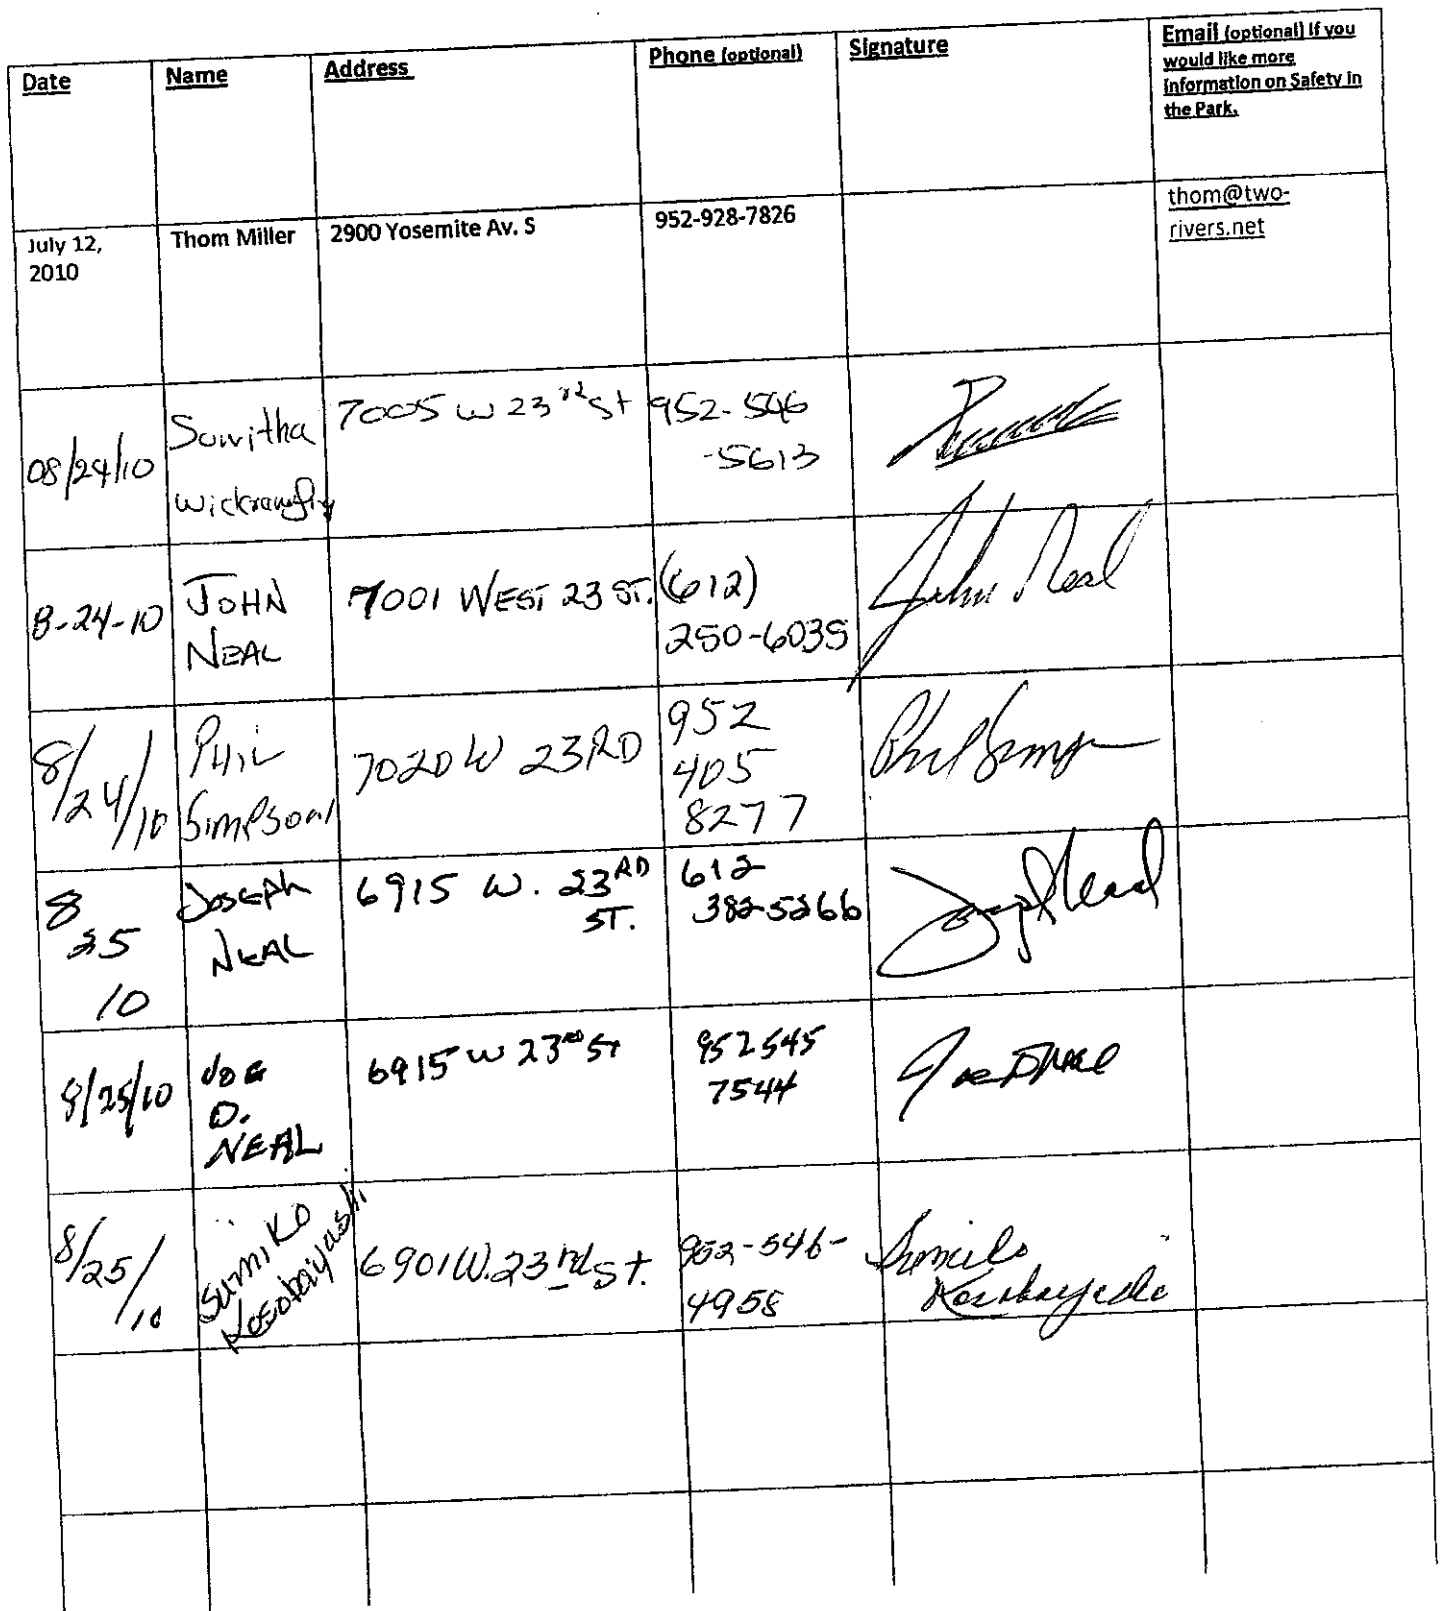 Date
Name
Address
Phone (optional)
Signature
Email (optional) If you
would like more
information on Safety in
the Park.
July 12,
2010
Thom Miller
2900 Yosemite Av. S
952-928-7826
thom@two-
rivers.net
08/24/10
7005 W 23rd St
952-546
-5613
8-24-10
JOHN
NEAL
7001 WEST 23 ST.
(612)
250-6035
John Neal
8/24/10
PHIL
SIMPSON
7020 W 23RD
952
405
8277
Phil
8
25
10
JOSEPH
NEAL
6915 W. 23RD
ST.
612
382-5266
Joseph Neal
8/25/10
JOE
D.
NEAL
6915 W 23RD ST
952 545
7544
Joe D Neal
8/25/
10
Sumiko
6901 W. 23rd St.
952-546-
4958
Sumiko